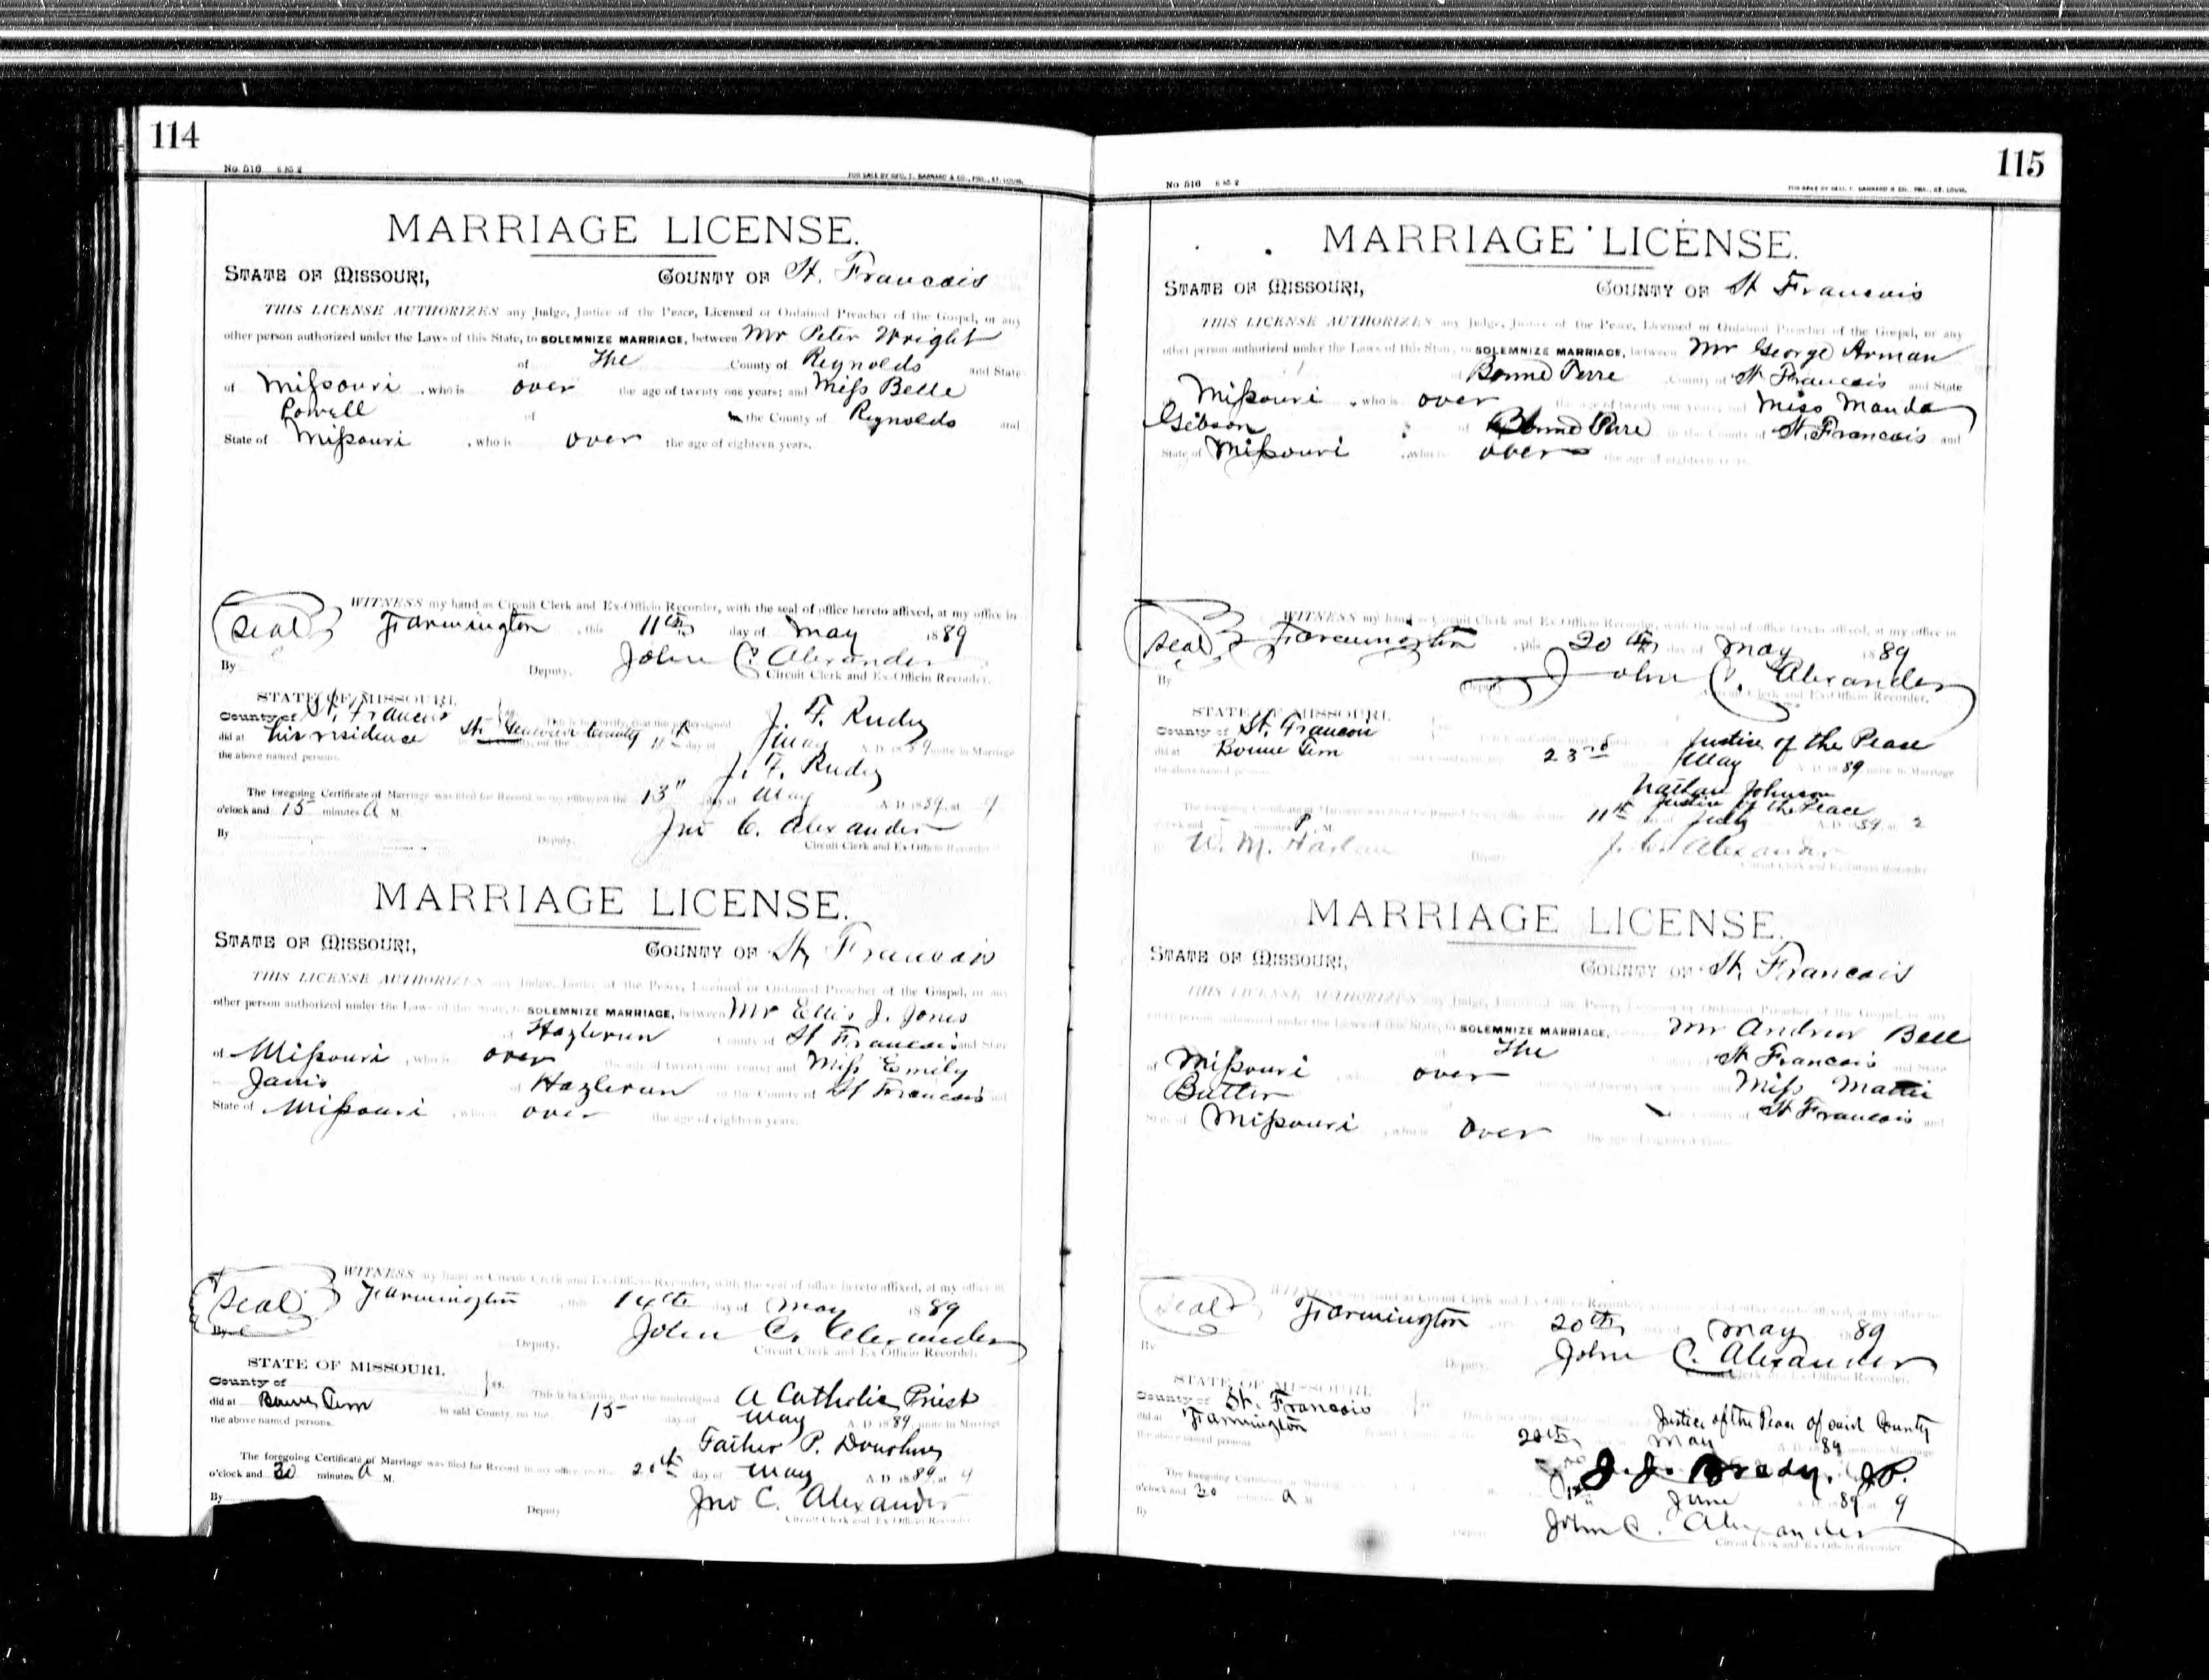 114
No 516
FOR SALE BY GEO. D. BARNARD & CO., PRS., ST. LOUIS.
MARRIAGE LICENSE.
STATE OF MISSOURI, COUNTY OF St. Francois
THIS LICENSE AUTHORIZES any Judge, Justice of the Peace, Licensed or Ordained Preacher of the Gospel, or any
other person authorized under the Laws of this State, to SOLEMNIZE MARRIAGE, between Mr Peter Wright
of The County of Reynolds and State
of Missouri, who is over the age of twenty one years; and Miss Belle
Powell of the County of Reynolds and
State of Missouri, who is over the age of eighteen years.
WITNESS my hand as Circuit Clerk and Ex-Officio Recorder, with the seal of office hereto affixed, at my office in
Seal Farmington, this 11th day of May 1889
By Deputy. John C. Alexander
Circuit Clerk and Ex-Officio Recorder.
STATE OF MISSOURI,
County of St. Francois ss. This is to Certify, that the undersigned J. F. Rudy
did at his residence St. Genevieve County in said County, on the 11th day of May A. D. 1889 unite in Marriage
the above named persons. J. F. Rudy
The foregoing Certificate of Marriage was filed for Record in my office on the 13" day of May A. D. 1889, at 9
o'clock and 15 minutes A M. Jno C. Alexander
By Deputy. Circuit Clerk and Ex Officio Recorder
MARRIAGE LICENSE.
STATE OF MISSOURI, COUNTY OF St. Francois
THIS LICENSE AUTHORIZES any Judge, Justice of the Peace, Licensed or Ordained Preacher of the Gospel, or any
other person authorized under the Laws of this State, to SOLEMNIZE MARRIAGE, between Mr Ellis J. Jones
of Hazlerun County of St Francois and State
of Missouri, who is over the age of twenty one years; and Miss Emily
Janis of Hazlerun in the County of St Francois and
State of Missouri, who is over the age of eighteen years.
WITNESS my hand as Circuit Clerk and Ex-Officio Recorder, with the seal of office hereto affixed, at my office in
Seal Farmington, this 14th day of May 1889
By Deputy. John C. Alexander
Circuit Clerk and Ex Officio Recorder.
STATE OF MISSOURI,
County of ss. This is to Certify, that the undersigned A Catholic Priest
did at Bonne Terre in said County, on the 15 day of May A. D. 1889, unite in Marriage
the above named persons. Father P.
The foregoing Certificate of Marriage was filed for Record in my office on the 20th day of May A. D. 1889, at 9
o'clock and 30 minutes A M. Jno C. Alexander
By Deputy Circuit Clerk and Ex Officio Recorder
115
No 516
FOR SALE BY GEO. D. BARNARD & CO., PRS., ST. LOUIS.
MARRIAGE LICENSE.
STATE OF MISSOURI, COUNTY OF St Francois
THIS LICENSE AUTHORIZES any Judge, Justice of the Peace, Licensed or Ordained Preacher of the Gospel, or any
other person authorized under the Laws of this State, to SOLEMNIZE MARRIAGE, between Mr George Arman
of Bonne Terre County of St Francois and State
Missouri, who is over the age of twenty one years; and Miss Manda
Gibson of Bonne Terre in the County of St. Francois and
State of Missouri, who is over the age of eighteen years.
WITNESS my hand as Circuit Clerk and Ex Officio Recorder, with the seal of office hereto affixed, at my office in
Seal Farmington, this 20th day of May 1889
By Deputy John C. Alexander
Circuit Clerk and Ex-Officio Recorder.
STATE OF MISSOURI,
County of St. Francois Justice of the Peace
did at Bonne Terre 23rd May 1889 unite in Marriage
the above named persons. Nathan Johnson
Justice of the Peace
11th July A. D. 1889, at 2
o'clock and minutes P M.
W. M. Harlan Deputy. J. C. Alexander
Circuit Clerk and Ex Officio Recorder
MARRIAGE LICENSE.
STATE OF MISSOURI, COUNTY OF St. Francois
THIS LICENSE AUTHORIZES any Judge, Justice of the Peace, Licensed or Ordained Preacher of the Gospel, or any
other person authorized under the Laws of this State, to SOLEMNIZE MARRIAGE, Mr Andrew Bell
of The St Francois and State
of Missouri, who is over the age of twenty one years; and Miss Mattie
Butler County of St Francois and
State of Missouri, who is Over the age of eighteen years.
WITNESS my hand as Circuit Clerk and Ex Officio Recorder, with the seal of office hereto affixed, at my office in
Seal Farmington 20th May 1889
By Deputy. John C. Alexander
Circuit Clerk and Ex-Officio Recorder.
STATE OF MISSOURI,
County of St. Francois Justice of the Peace of said County
did at Farmington 20th May 1889 unite in Marriage
the above named persons. J. J. Brady, J.P.
The foregoing Certificate of Marriage June 1889 at 9
o'clock and 30 A M.
By Deputy. John C. Alexander
Circuit Clerk and Ex-Officio Recorder